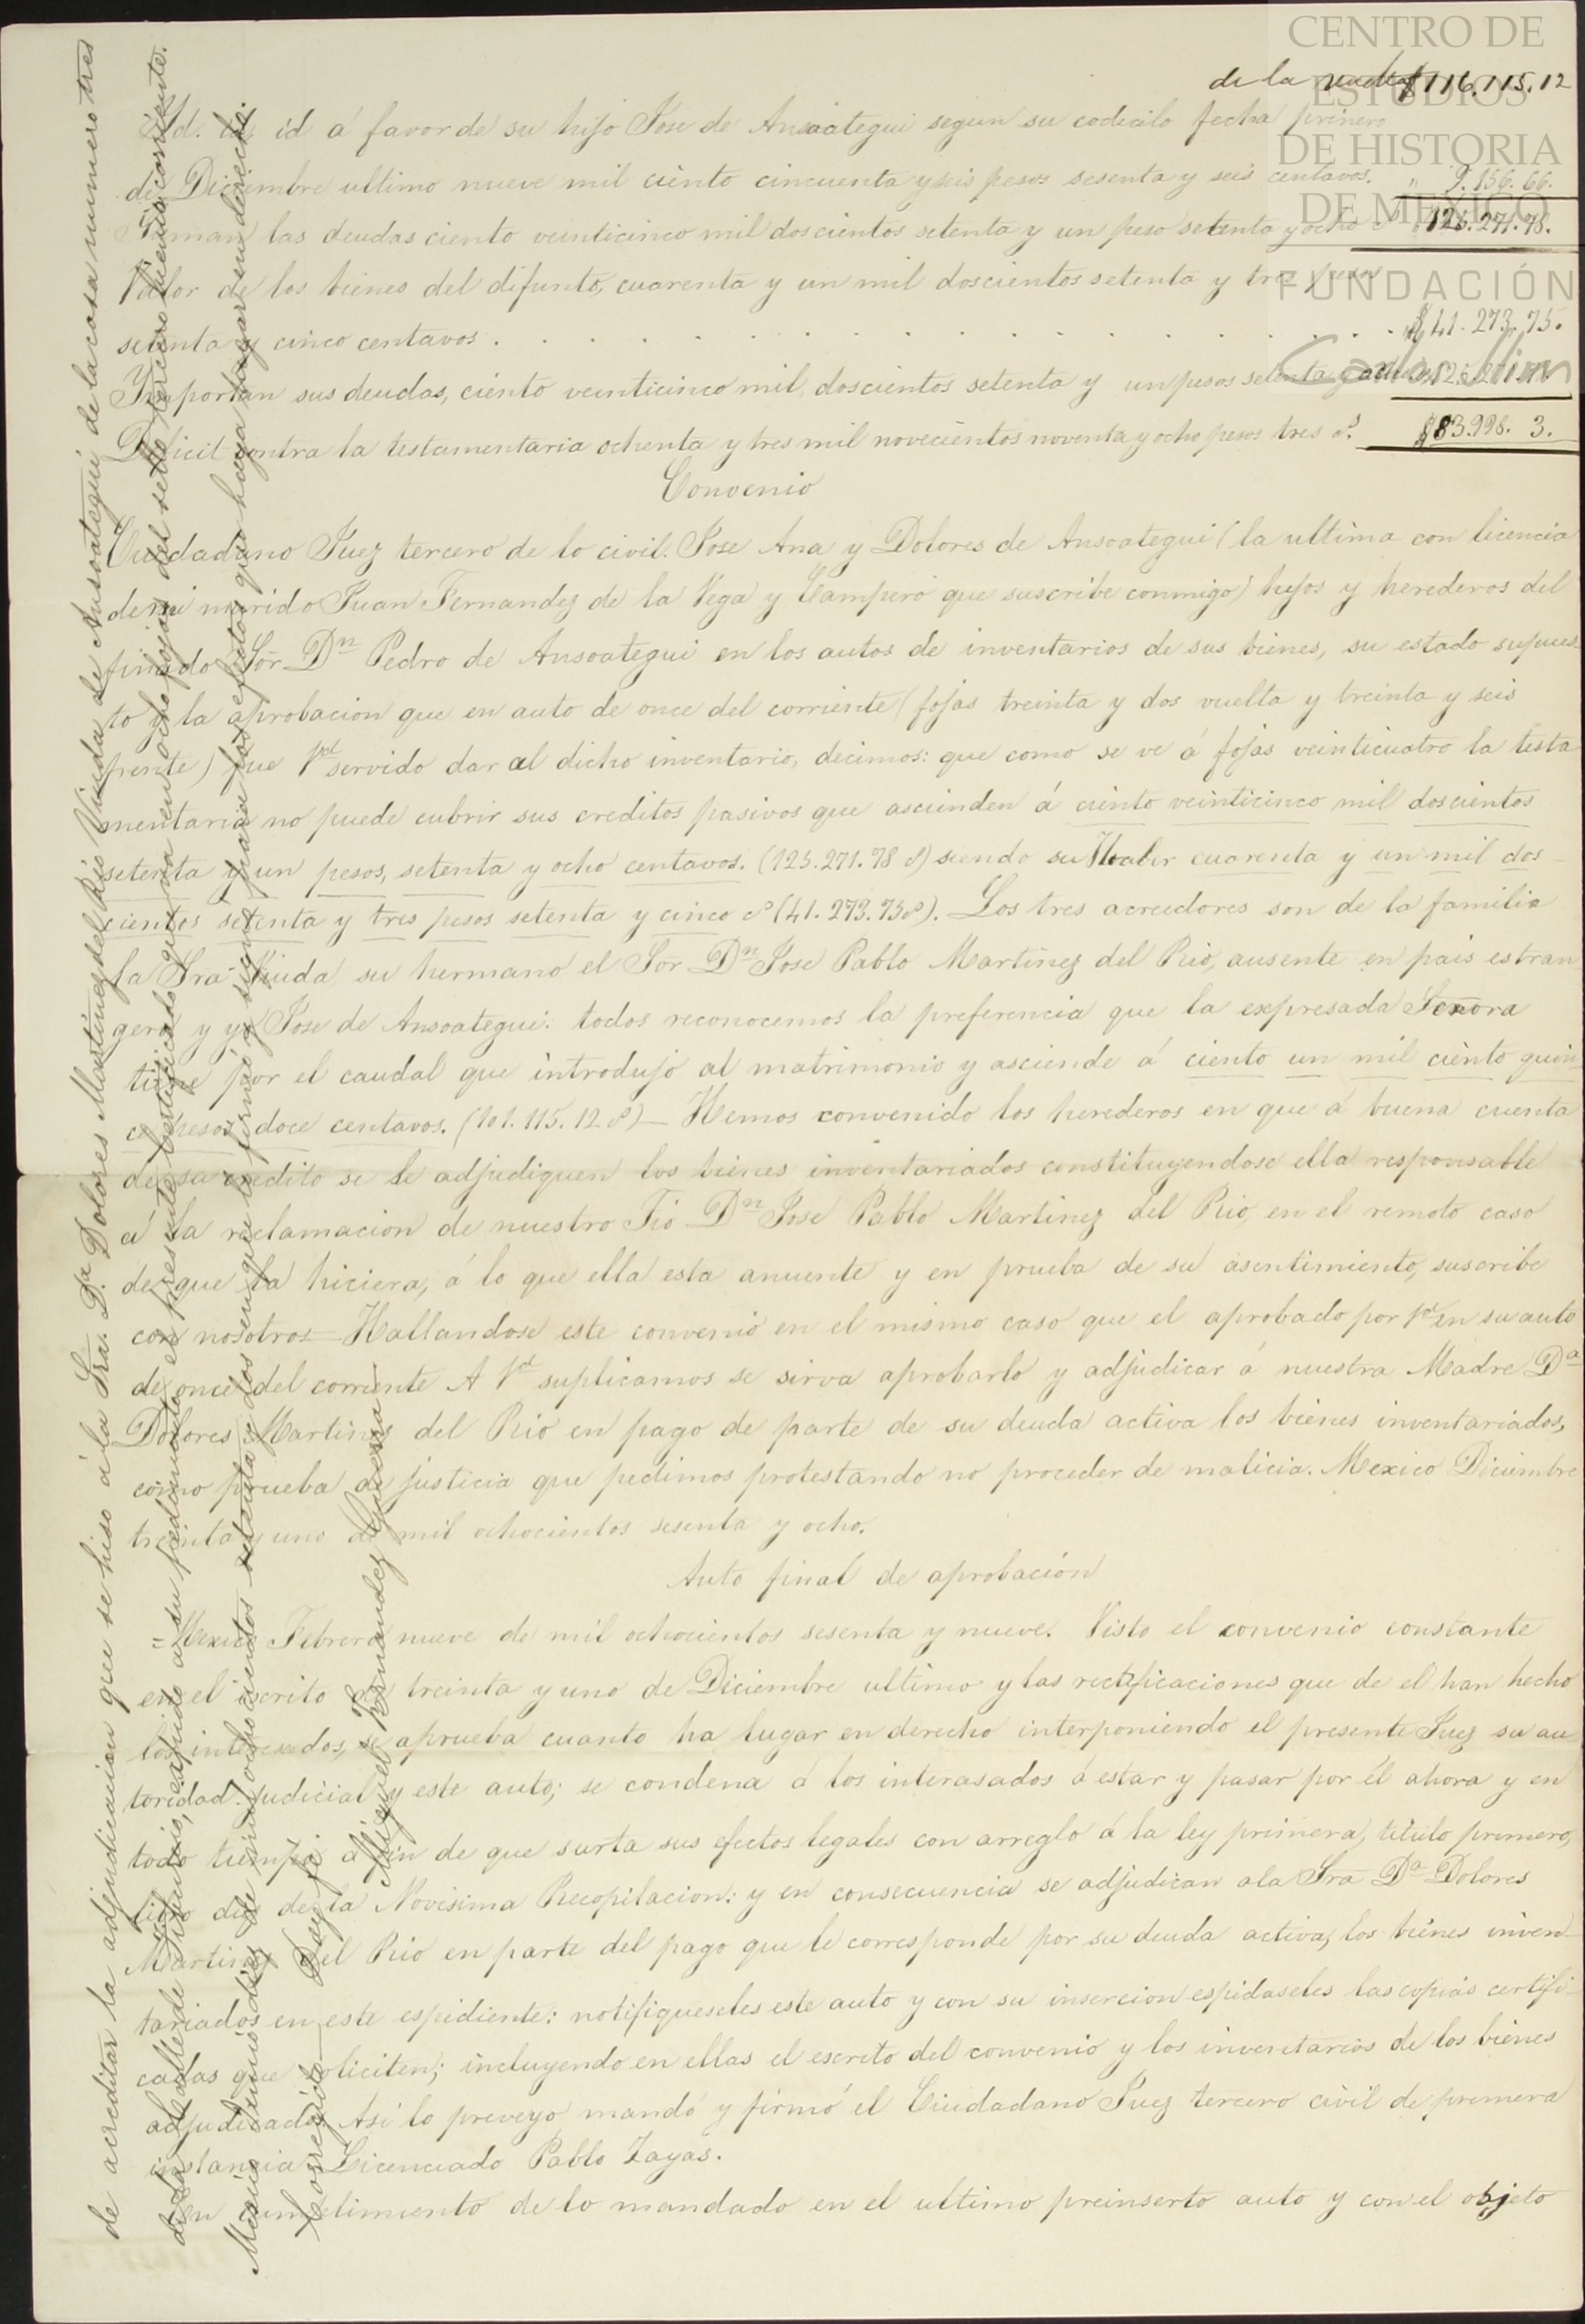 CENTRO DE
ESTUDIOS
DE HISTORIA
DE MEXICO
FUNDACIÓN
Carlos Slim
de la vuelta $116.115.12
Id. id. id á favor de su hijo Jose de Ansoategui segun su codicilo fecha primero
de Diciembre ultimo nueve mil ciento cincuenta y seis pesos sesenta y seis centavos. " 9.156.66.
Suman las deudas ciento veinticinco mil doscientos setenta y un peso setenta y ocho 125.271.78.
Valor de los bienes del difunto, cuarenta y un mil doscientos setenta y tres pesos
setenta y cinco centavos . . . . . . . . . . . . . . $41.273.75.
Ymportan sus deudas, ciento veinticinco mil, doscientos setenta y un pesos setenta y ocho 125.271.78.
Deficit contra la testamentaria ochenta y tres mil novecientos noventa y ocho pesos tres c.s $83.998. 3.
Convenio
Ciudadano Juez tercero de lo civil. Jose Ana y Dolores de Ansoategui (la ultima con licencia
de mi marido Juan Fernandez de la Vega y Campero que suscribe conmigo) hijos y herederos del
finado Sõr Dn Pedro de Ansoategui en los autos de inventarios de sus bienes, su estado supues-
to y la aprobacion que en auto de once del corriente (fojas treinta y dos vuelta y treinta y seis
frente) fue Vd servido dar al dicho inventario, decimos: que como se ve á fojas veinticuatro la testa
mentaria no puede cubrir sus creditos pasivos que ascienden á ciento veinticinco mil doscientos
setenta y un pesos, setenta y ocho centavos. (125.271.78 c) siendo su Haber cuarenta y un mil dos-
cientos setenta y tres pesos setenta y cinco cs (41.273.75 c). Los tres acreedores son de la familia
la Sra Viuda, su hermano el Sõr Dn Jose Pablo Martinez del Rio, ausente en pais estran
gero y yo Jose de Ansoategui: todos reconocemos la preferencia que la expresada Señora
tiene por el caudal que introdujo al matrimonio y asciende á ciento un mil ciento quin
ce pesos doce centavos. (101.115.12 c) — Hemos convenido los herederos en que á buena cuenta
de su credito se le adjudiquen los bienes inventariados constituyendose ella responsable
á la reclamacion de nuestro Tio Dn Jose Pablo Martinez del Rio, en el remoto caso
de que la hiciera, á lo que ella esta anuente y en prueba de su asentimiento, suscribe
con nosotros — Hallandose este convenio en el mismo caso que el aprobado por Vd en su auto
de once del corriente A Vd suplicamos se sirva aprobarlo y adjudicar á nuestra Madre Da
Dolores Martinez del Rio en pago de parte de su deuda activa los bienes inventariados,
como prueba de justicia que pedimos protestando no proceder de malicia. Mexico Diciembre
treinta y uno de mil ochocientos sesenta y ocho.
Auto final de aprobación
= Mexico Febrero nueve de mil ochocientos sesenta y nueve. Visto el convenio constante
en el escrito de treinta y uno de Diciembre ultimo y las rectificaciones que de el han hecho
los interesados, se aprueba cuanto ha lugar en derecho interponiendo el presente Juez su au
toridad judicial y este auto; se condena á los interasados á estar y pasar por él ahora y en
todo tiempo á fin de que surta sus efectos legales con arreglo á la ley primera, titulo primero,
libro diez de la Novisima Recopilacion: y en consecuencia se adjudican a la Sra Da Dolores
Martinez del Rio en parte del pago que le corresponde por su deuda activa, los bienes inven-
tariados en este espidiente: notifiqueseles este auto y con su insercion espidaseles las copias certifi
cadas que soliciten; incluyendo en ellas el escrito del convenio y los inventarios de los bienes
adjudicados. Asi lo preveyo mandó y firmó el Ciudadano Juez tercero civil de primera
instancia Licenciado Pablo Zayas.
En cumplimiento de lo mandado en el ultimo preinserto auto y con el objeto
de acreditar la adjudicacion que se hiso á la Sra. Da Dolores Martinez del Rio Viuda de Ansoategui de la casa numero tres
de la Calle de expido á su pedimento el presente certificado que va en ocho fojas del sello tercero
Mexico Junio diez de mil ochocientos setenta y dos en que lo firmé y signé para los efectos que haya lugar en derecho
Corregida — Doy fé Miguel Fernandez Guerra